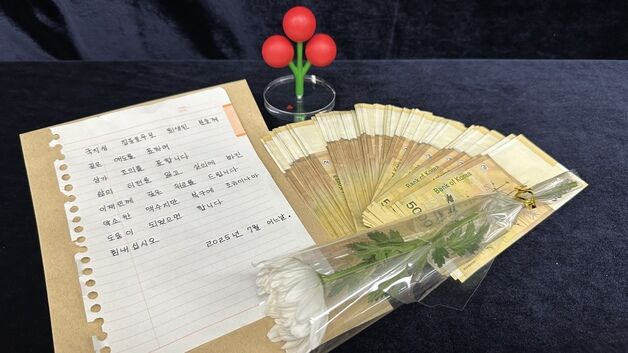 국지성 집중호우로 희생된 분들께
깊은 애도를 표하며
삼가 조의를 표합니다.
삶의 터전을 잃고 실의에 빠진
이재민께 깊은 위로를 드립니다
약소한 액수지만 복구에 조금이나마
도움이 되었으면 합니다.
힘내십시오 2025년 7월 어느날.
Bank of Korea
Bank of Korea
50